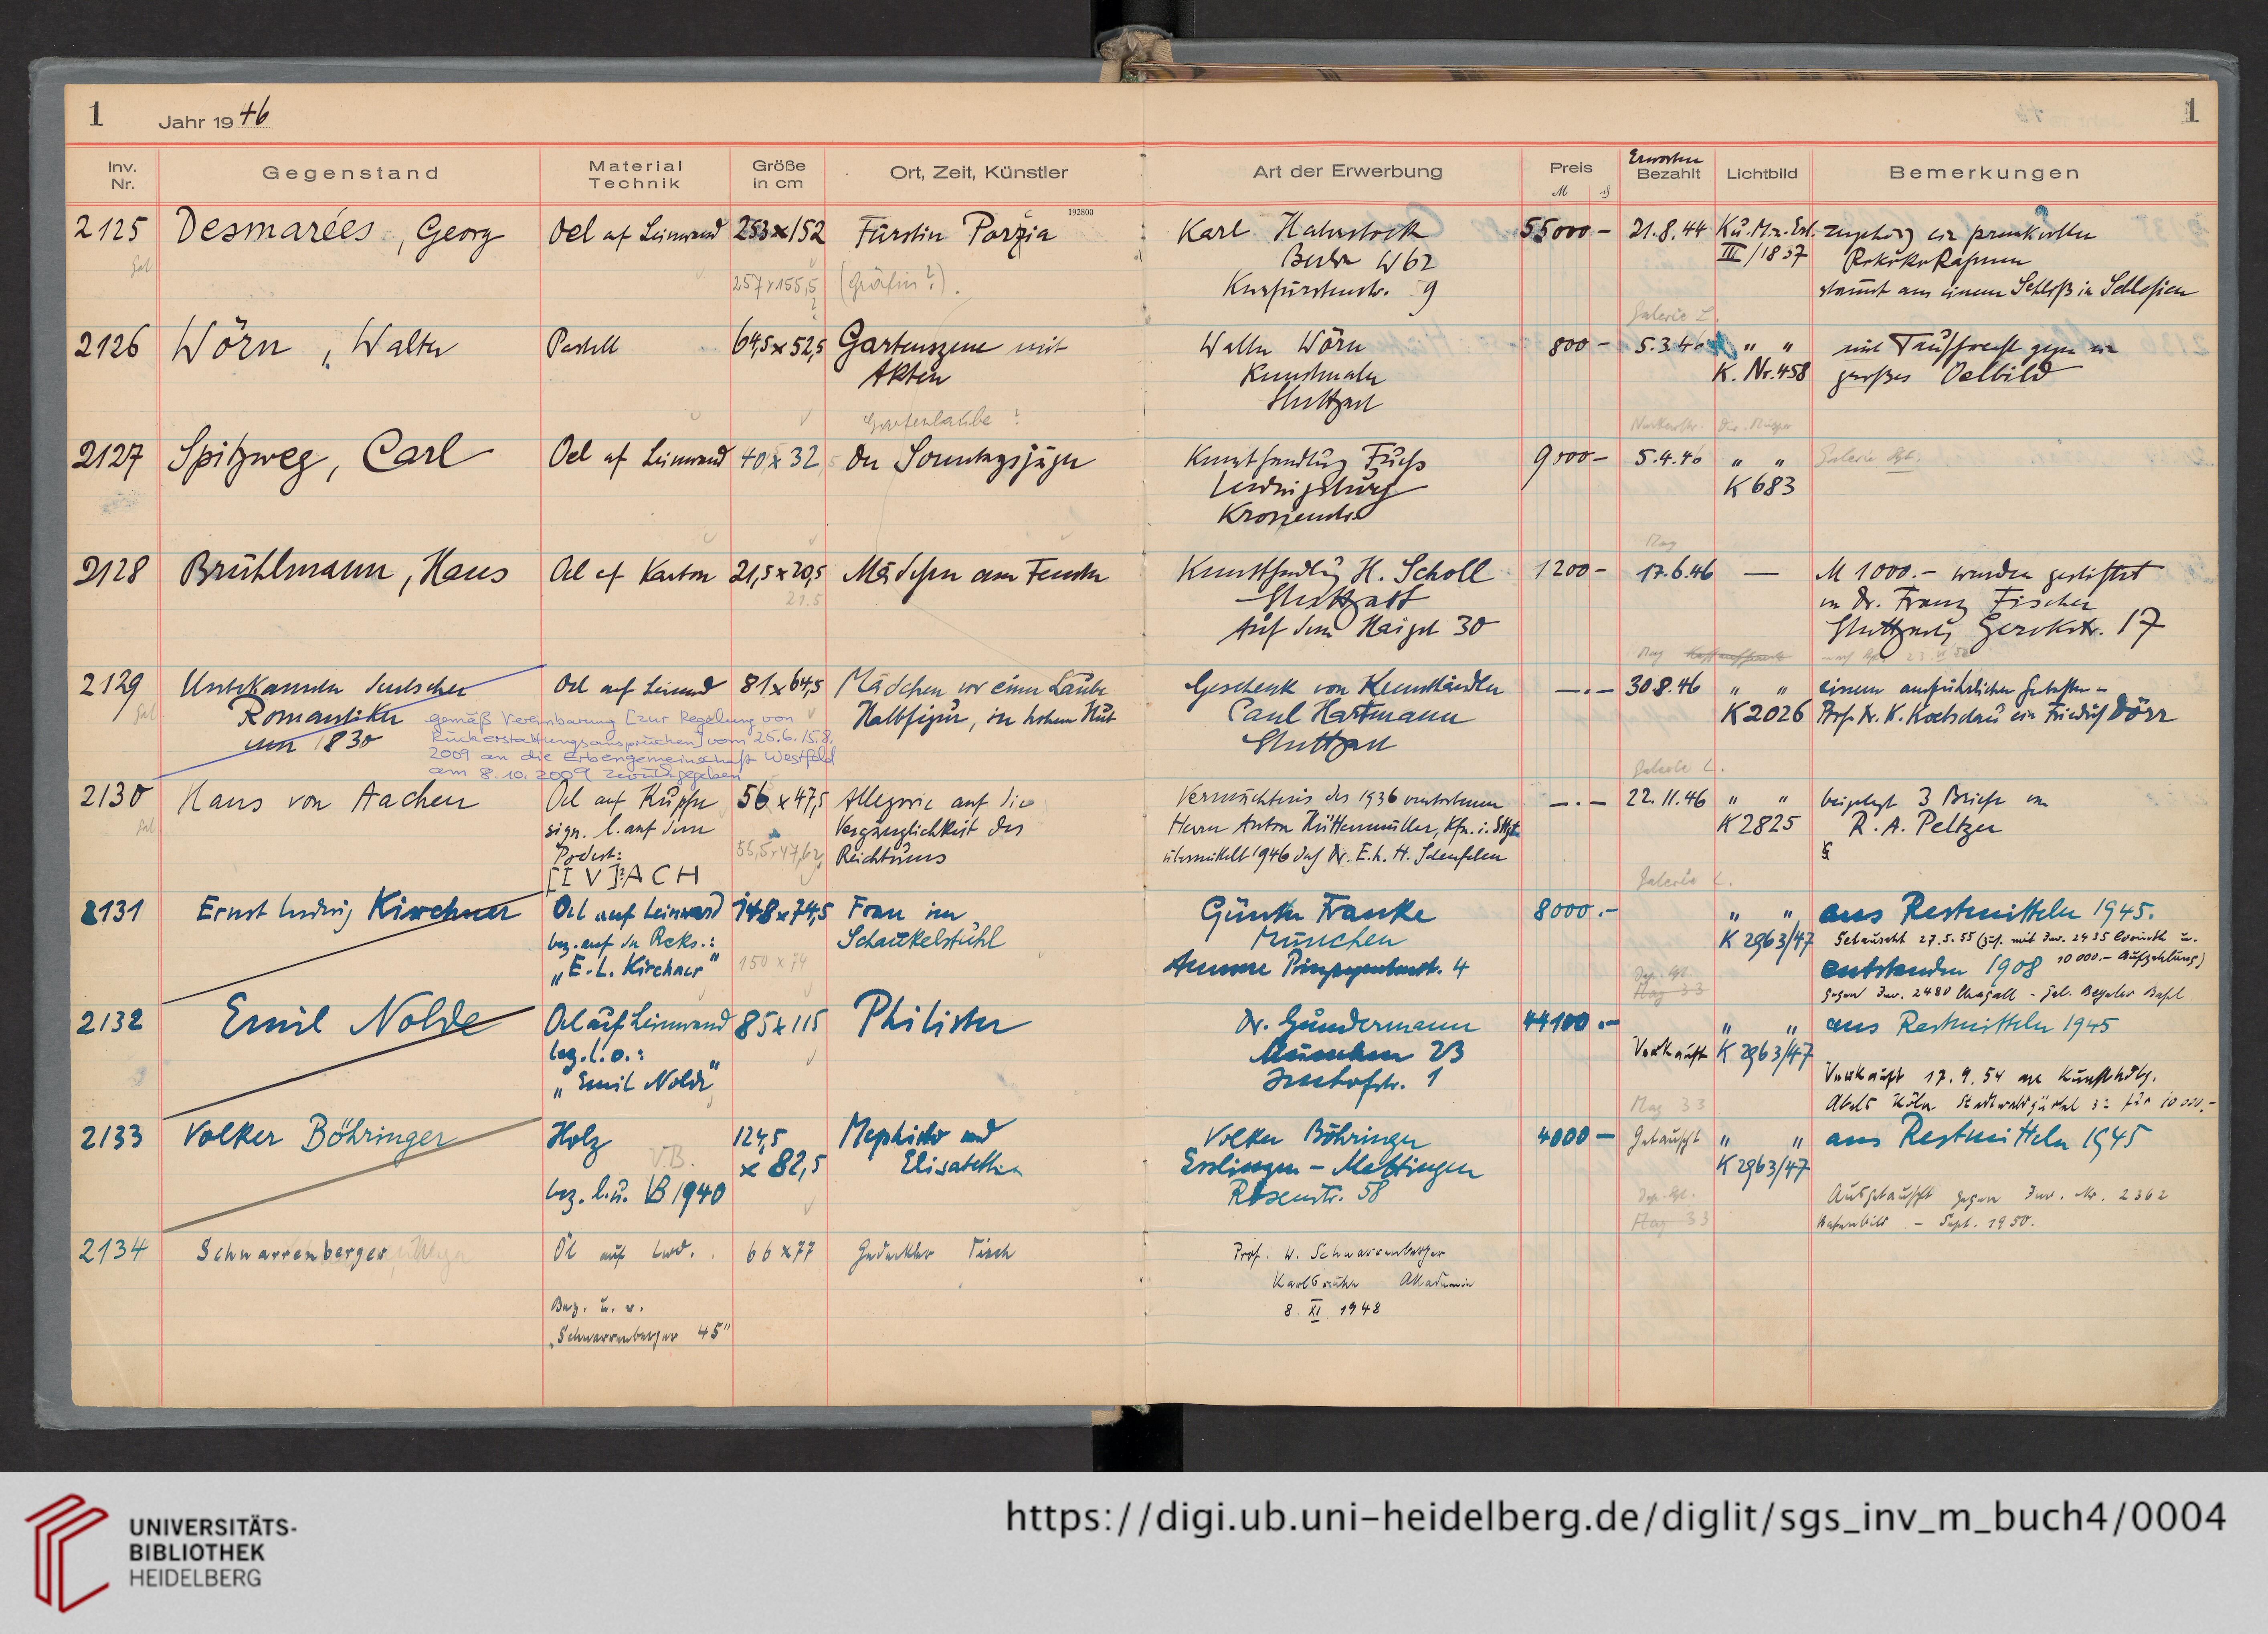 1 Jahr 1946 1
Inv. Nr. Gegenstand Material Technik Größe in cm Ort, Zeit, Künstler Art der Erwerbung Preis Erworben Bezahlt Lichtbild Bemerkungen
M
192800
2125 Desmarées, Georg Oel auf Leinwand 253x152 Fürstin Porzia Karl Haberstock 55000- 21.8.44
Berlin W62 III/1857
257x155,5 (Gräfin?). Kurfürstenstr. 9
stammt aus einem Schloß in Schlesien
Galerie L.
2126 Wörn, Walter Pastell 64,5x52,5 Gartenszene mit Walter Wörn 800- 5.3.46 " "
Akten Kunstmaler K. Nr. 458 großes Oelbild
Stuttgart
Gartenlaube?
2127 Spitzweg, Carl Oel auf Leinwand 40x32,5 Der Sonntagsjäger Kunsthandlung Fuchs 9000- 5.4.46 " "
Ludwigsburg K683
Kronenstr.
Mag
2128 Brühlmann, Hans Oel auf Karton 21,5x20,5 Mädchen am Fenster Kunsthandlung H. Scholl 1200- 17.6.46 — M 1000.- wurden gestiftet
21.5 Stuttgart von Dr. Franz Fischer
Auf dem Haigst 30 Stuttgart, Gerokstr. 17
Mag
2129 Unbekannter deutscher Oel auf Leinwand 81x64,5 Mädchen vor einer Laube Geschenk von Kunsthändler —.— 30.8.46 " "
Gal. Romantiker Halbfigur, in hohem Hut Paul Hartmann K2026 Prof. Dr. K. Koetschau ein Friedrich Dörr
um 1830 Stuttgart
gemäß Vereinbarung [zur Regelung von
Rückerstattungsansprüchen] vom 25.6./5.8.
2009 an die Erbengemeinschaft Westfeld
am 8.10.2009 zurückgegeben
Galerie L.
2130 Hans von Aachen Oel auf Kupfer 56x47,5 Allegorie auf die Vermächtnis des 1936 verstorbenen —.— 22.11.46 " " beigelegt 3 Briefe von
Gal sign. l. auf dem Vergänglichkeit des Herrn Anton Hüttenmüller, Kfm. i. Stgt. K2825 R. A. Peltzer
Podest: 55,5x47,6 Reichtums übermittelt 1946 dch Dr. E.h. H. Scheufelen §
[I V]?ACH
Galerie L.
2131 Ernst Ludwig Kirchner Oel auf Leinwand 148x74,5 Frau im Günther Franke 8000.- " " aus Restmitteln 1945.
bez. auf der Rcks.: Schaukelstuhl München K 2963/47 Getauscht 27.5.55 (zus. mit Inv. 2435 Corinth u.
„E. L. Kirchner" 150 x 74 entstanden 1908 10 000.- Aufzahlung)
Mag 33 gegen Inv. 2480 Chagall - Gal. Beyeler Basel
2132 Emil Nolde Oel auf Leinwand 85x115 Philister Dr. Gundermann 44100.- " " aus Restmitteln 1945
bez. l. o.: München 23 Verkauft K 2963/47
„Emil Nolde" 1 Verkauft 17.9.54 an Kunsthdlg.
Mag 33 Abels Köln Stadtwaldgürtel 32 für 10 000,-
2133 Volker Böhringer Holz 124,5 Mephisto und Volker Böhringer 4000- Getauscht " " aus Restmitteln 1945
V.B. x 82,5 Elisabeth Esslingen-Mettingen K 2963/47
bez. l. u. VB 1940 Rosenstr. 58
Ausgetauscht gegen Inv. Nr. 2362
Mag 33 - Sept. 1950.
2134 Schwarrenberger Öl auf Lwd. 66x77 Gedeckter Tisch Prof. W. Schwarrenberger
Karlsruhe Akademie
Bez. u. r. 8. XI. 1948
„Schwarrenberger 45"
UNIVERSITÄTS-
BIBLIOTHEK
HEIDELBERG
https://digi.ub.uni-heidelberg.de/diglit/sgs_inv_m_buch4/0004